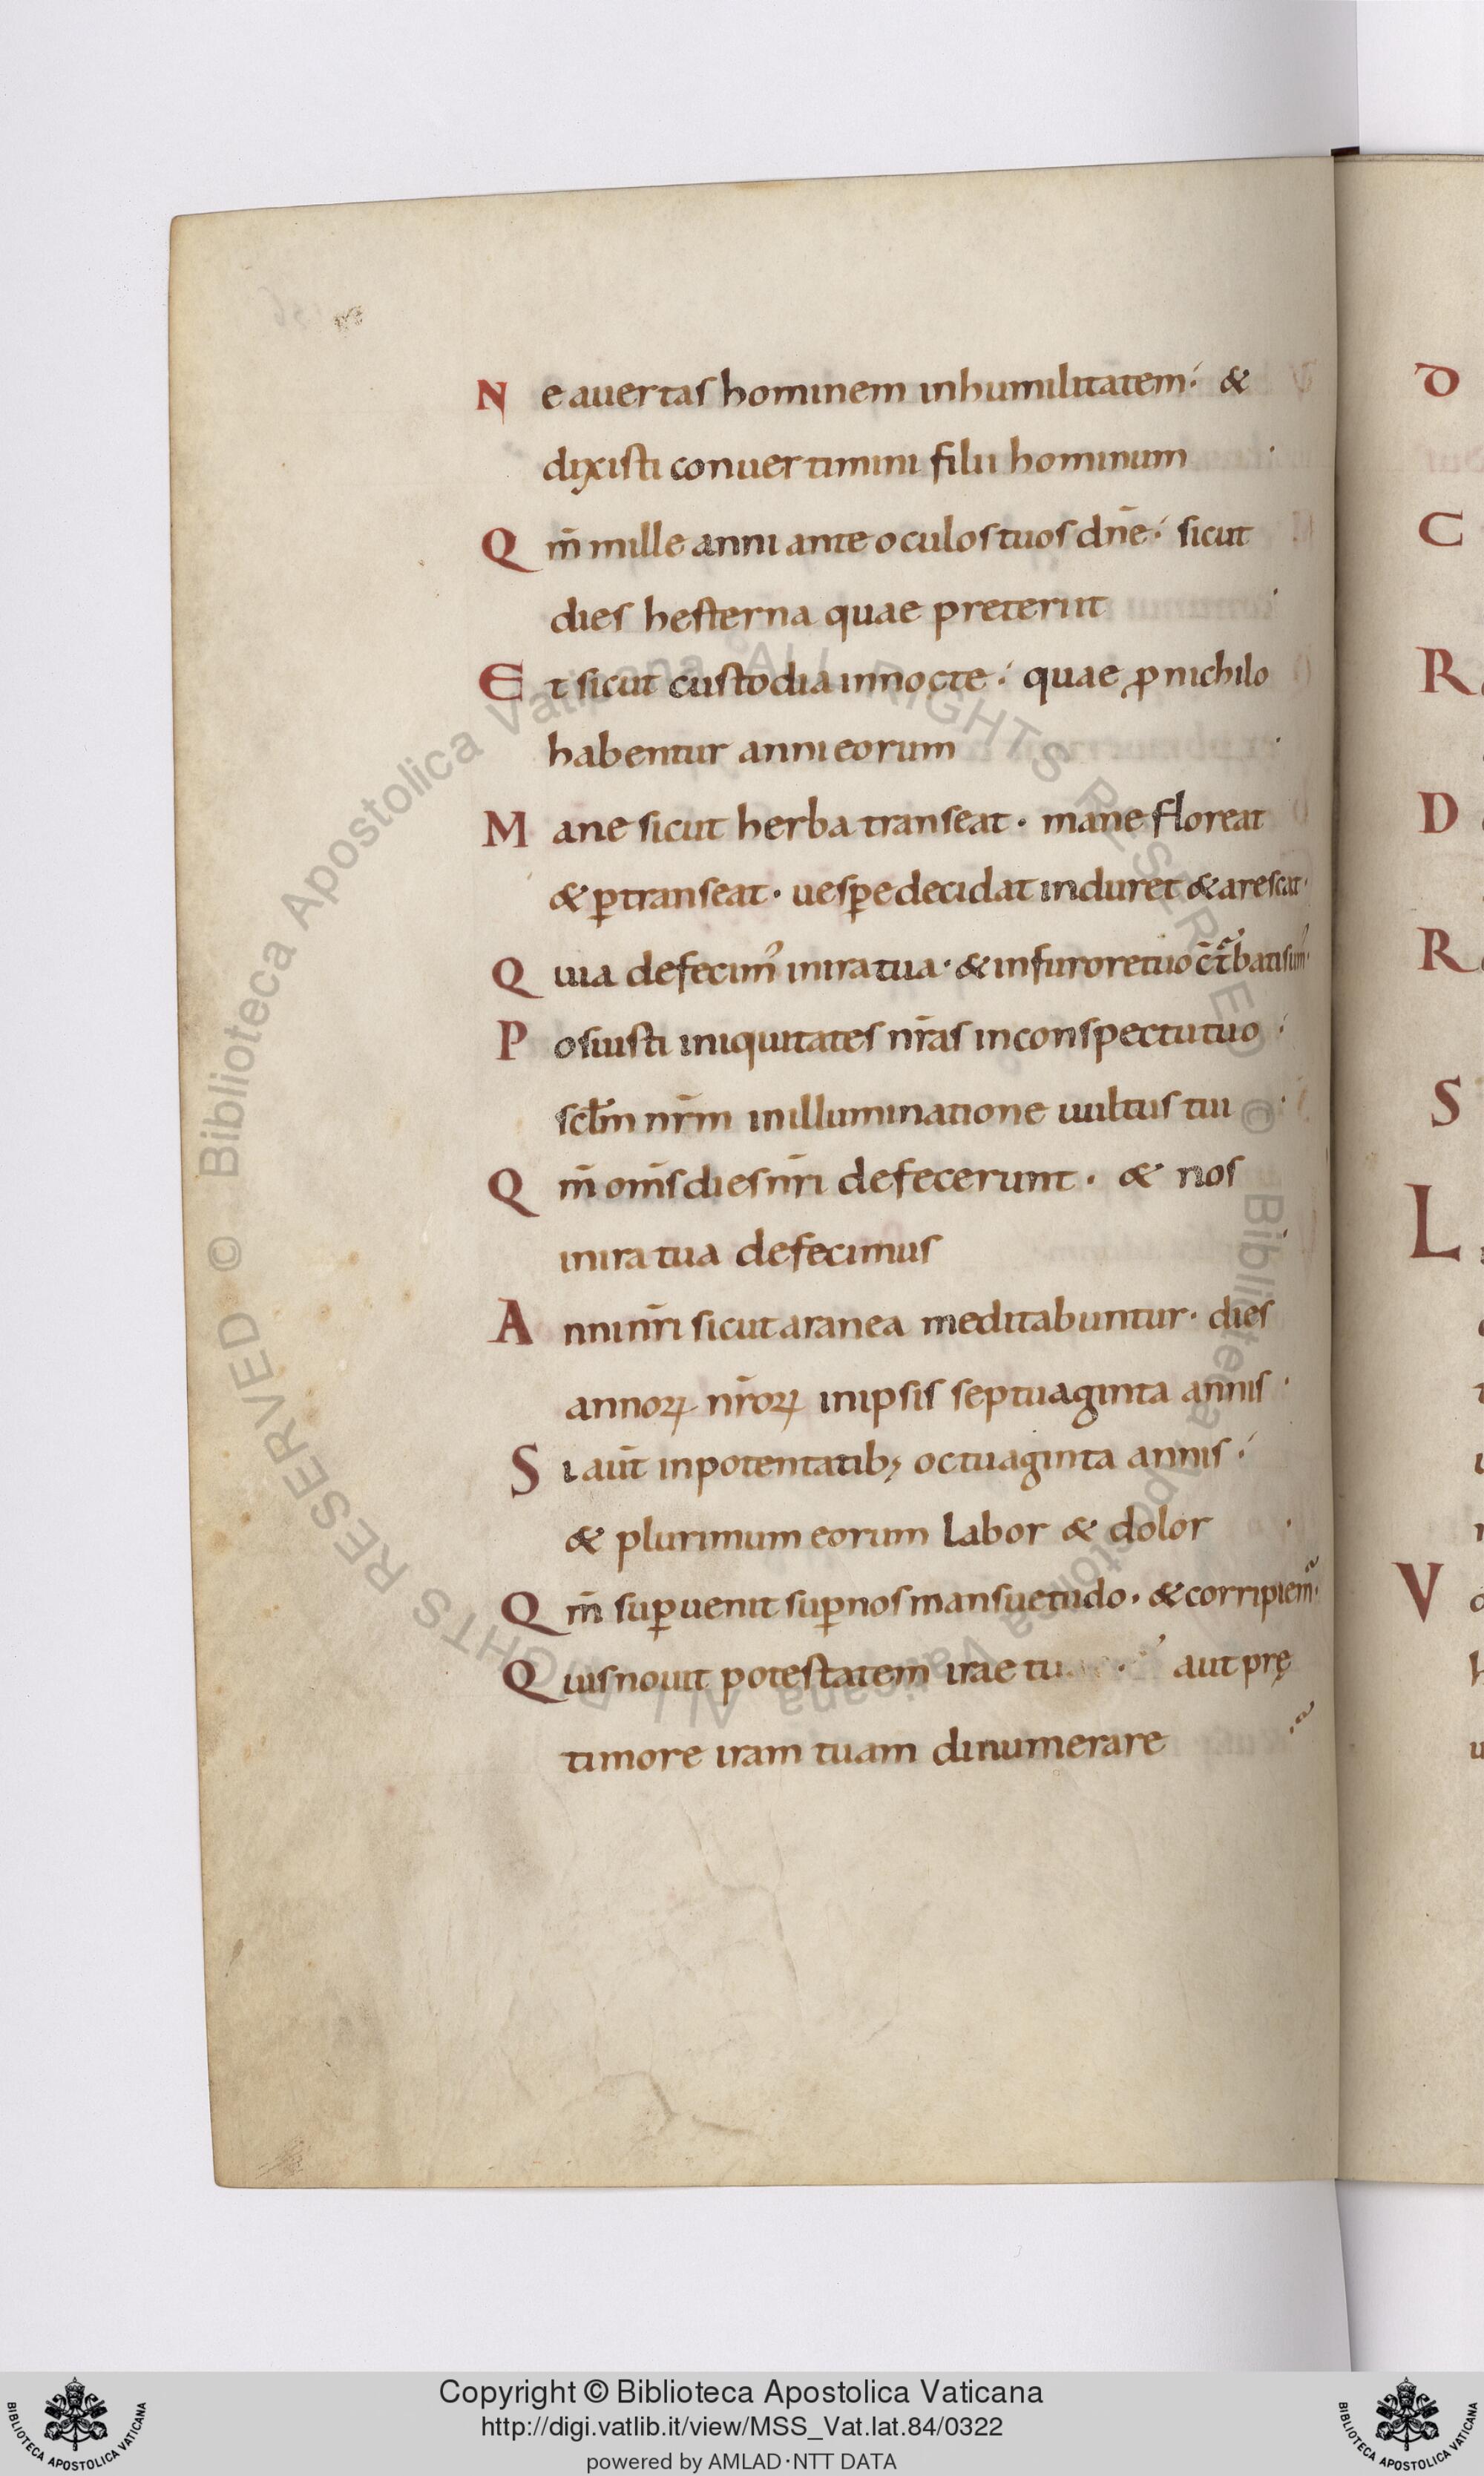 N e auertas hominem inhumilitatem· &
dixisti conuertimini filii hominum ·
Q m̄ mille anni ante oculos tuos dn̄e· sicut
dies hesterna quae preteriit ·
E t sicut custodia innocte· quae ꝓ nichilo
habentur anni eorum ·
M ane sicut herba transeat· mane floreat
& ꝑtranseat· uesꝑe decidat induret & arescat·
Q uia defecim᾽ inira tua· & infurore tuo c̄t̄batisum᾽·
P osuisti iniquitates nr̄as inconspectu tuo ·
sctm̄ nr̄m inilluminatione uultus tui ·
Q m̄ om̄s dies nr̄i defecerunt· & nos
inira tua defecimus ·
A nni nr̄i sicut aranea meditabuntur· dies
annoꝝ nr̄oꝝ inipsis septuaginta annis ·
S i aūt inpotentatib; octuaginta annis·
& plurimum eorum labor & dolor ·
Q m̄ suꝑuenit suꝑ nos mansuetudo· & corripiem᾽·
Q uis nouit potestatem irae tu · aut prę
timore iram tuam dinumerare
D
C
R
D
R
S
L
V
© Biblioteca Apostolica Vaticana ALL RIGHTS RESERVED © Biblioteca Apostolica Vaticana ALL RIGHTS RESERVED
Copyright © Biblioteca Apostolica Vaticana
http://digi.vatlib.it/view/MSS_Vat.lat.84/0322
powered by AMLAD·NTT DATA
BIBLIOTECA APOSTOLICA VATICANA
BIBLIOTECA APOSTOLICA VATICANA